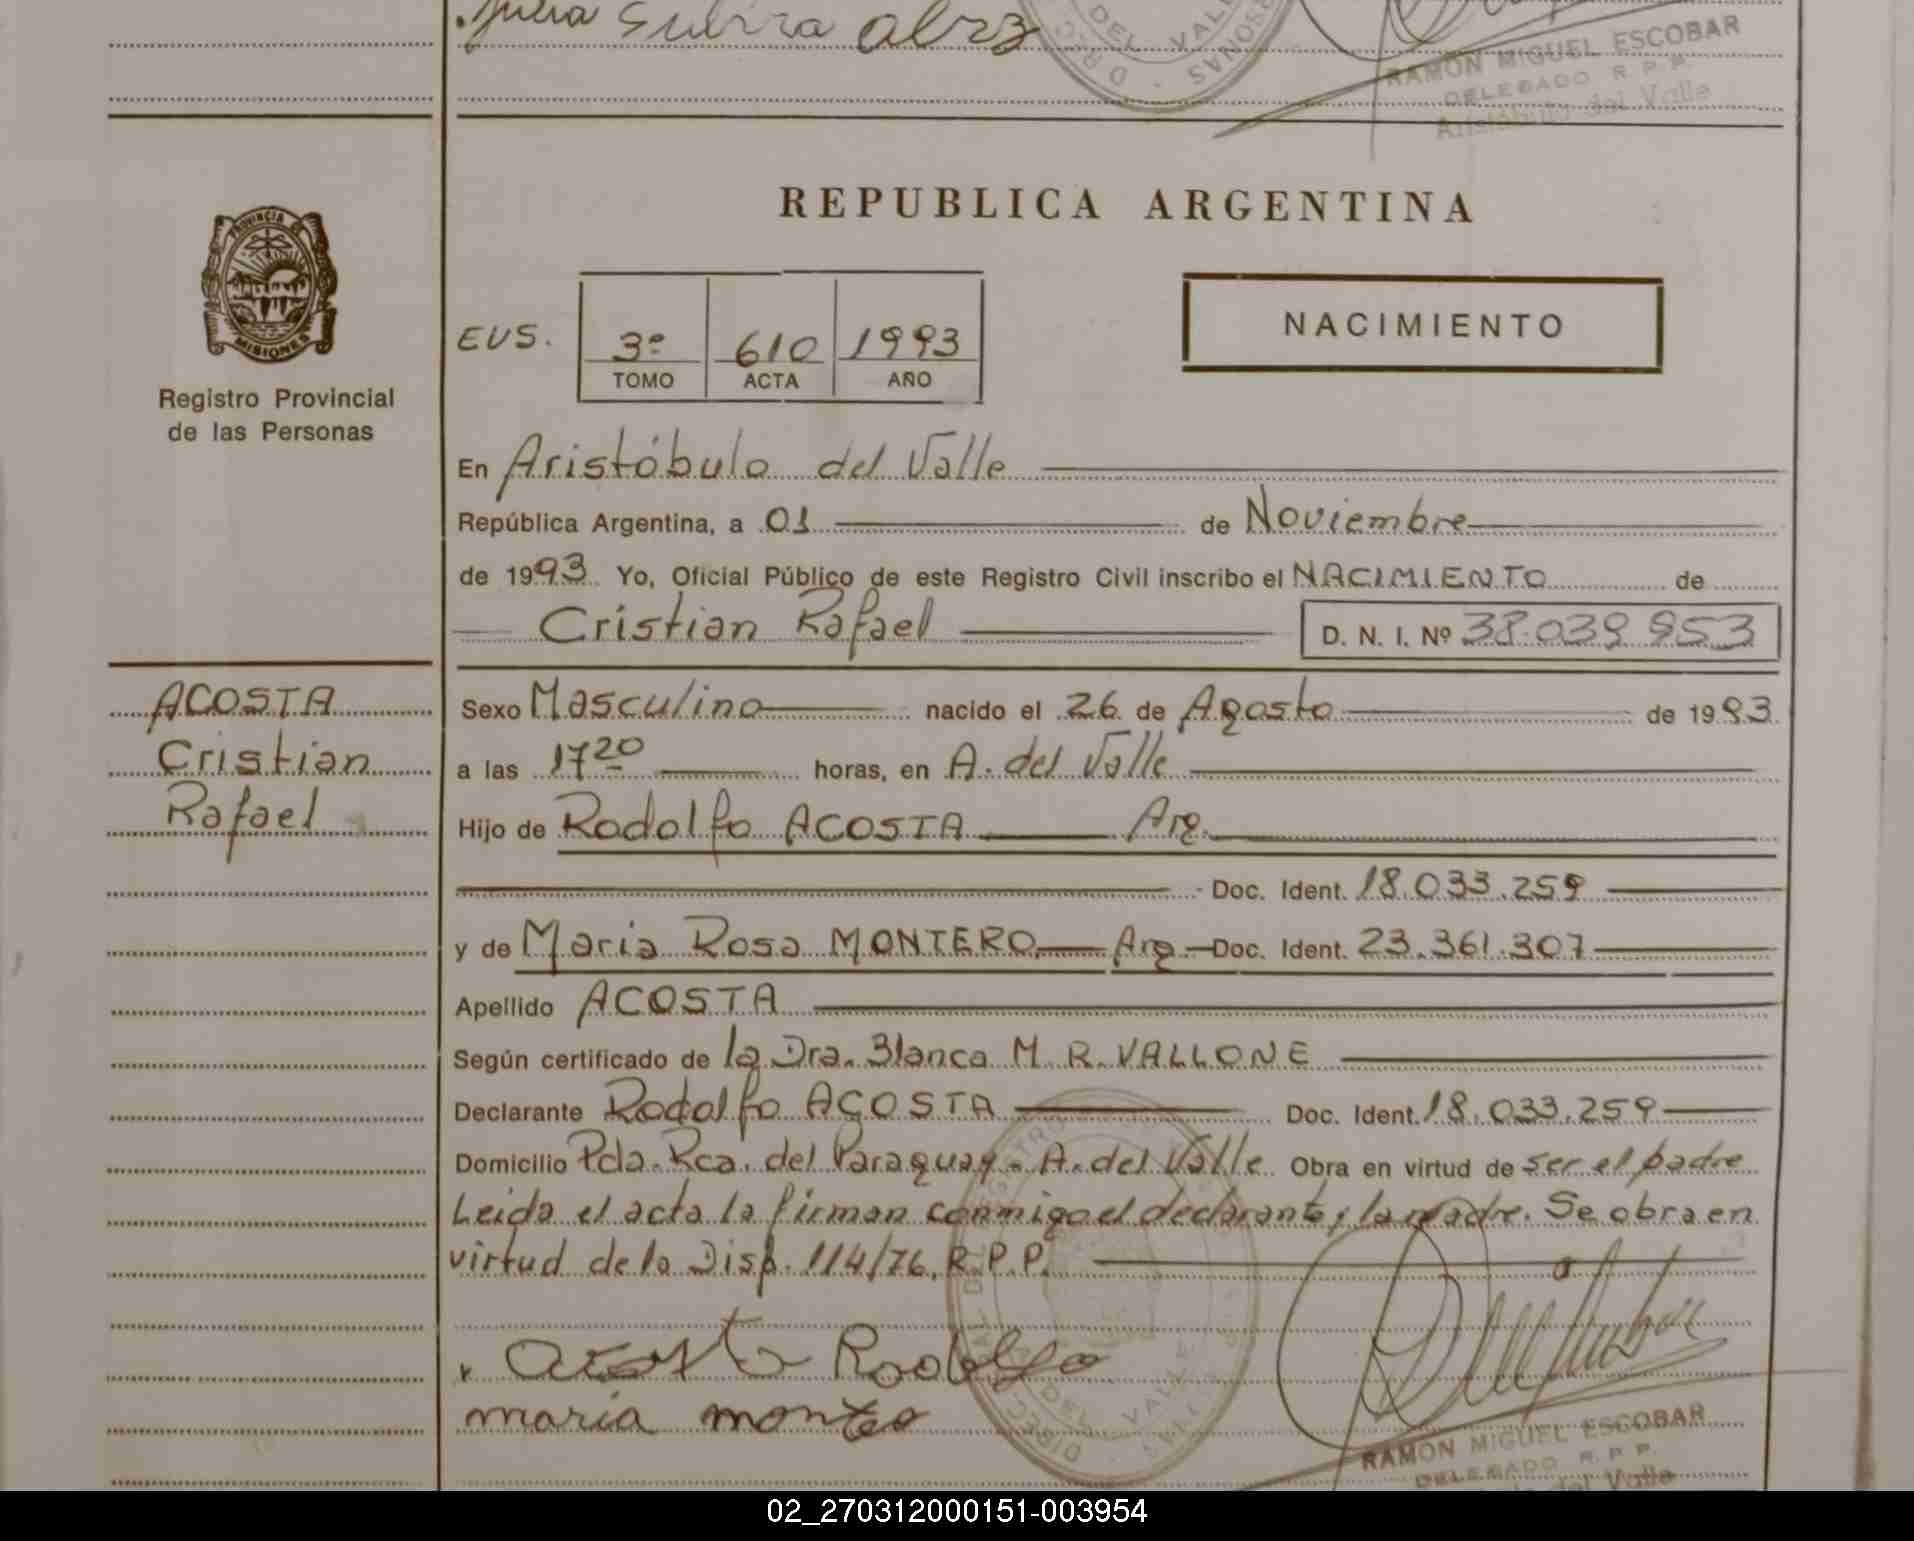 Julia Subira
DEL VALLE
RAMON MIGUEL ESCOBAR
DELEGADO R. P. P.
Aristóbulo del Valle
REPUBLICA ARGENTINA
PROVINCIA
MISIONES
Registro Provincial
de las Personas
EUS. 3º 610 1993
TOMO ACTA AÑO
NACIMIENTO
En Aristóbulo del Valle
República Argentina, a 01 de Noviembre
de 1993 Yo, Oficial Público de este Registro Civil inscribo el NACIMIENTO de
Cristian Rafael D. N. I. Nº 38.039.953
ACOSTA
Cristian
Rafael
Sexo Masculino nacido el 26 de Agosto de 1993
a las 17 20 horas, en A. del Valle
Hijo de Rodolfo ACOSTA Arg.
Doc. Ident. 18.033.259
y de Maria Rosa MONTERO Arg. Doc. Ident. 23.361.307
Apellido ACOSTA
Según certificado de la Dra. Blanca M. R. VALLONE
Declarante Rodolfo ACOSTA Doc. Ident. 18.033.259
Domicilio Pda. Rca. del Paraguay - A. del Valle Obra en virtud de ser el padre
Leida el acta la firman conmigo el declarante y la madre. Se obra en
virtud de la Disp. 114/76. R.P.P.
Acosta Rodolfo
maria monteo
DEL VALLE
RAMON MIGUEL ESCOBAR
DELEGADO R. P. P.
del Valle
02_270312000151-003954